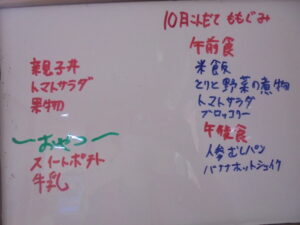 10月こんだて ももぐみ
親子丼
トマトサラダ
果物
〜おやつ〜
スイートポテト
牛乳
午前食
米飯
とりと野菜の煮物
トマトサラダ
ブロッコリー
午後食
人参むしパン
バナナホットシェイク